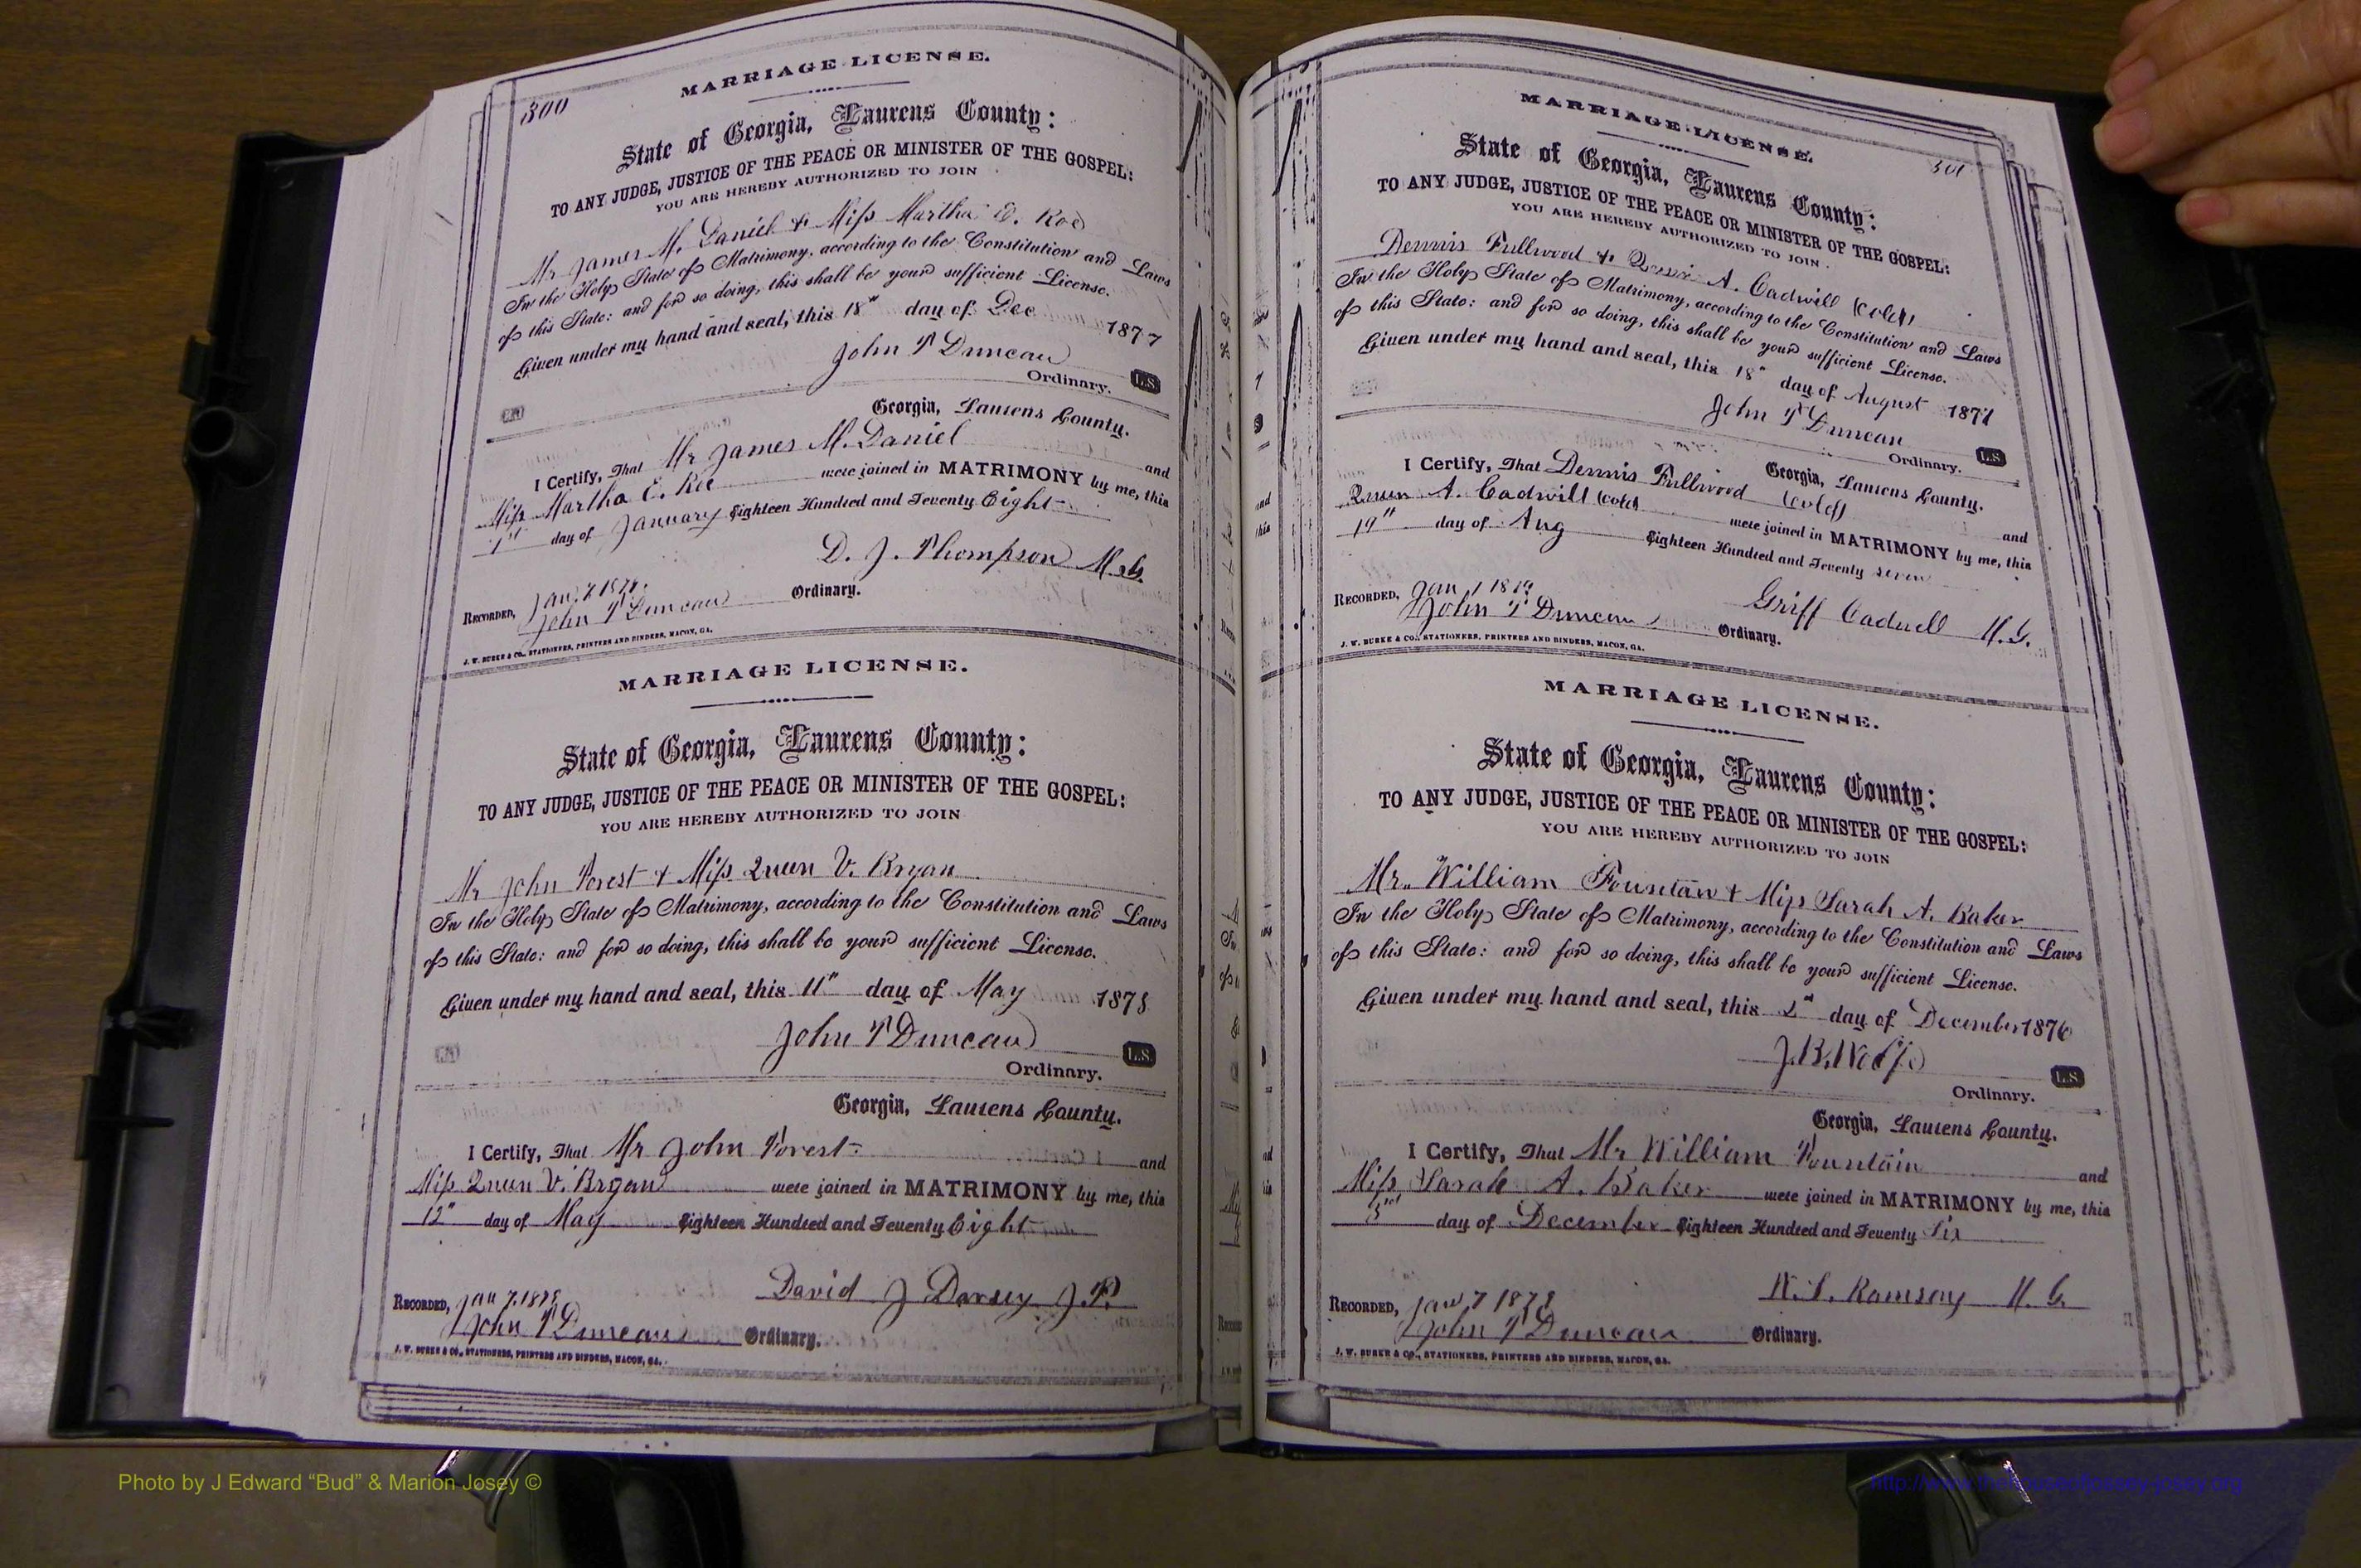 300
MARRIAGE LICENSE.
State of Georgia, Laurens County:
TO ANY JUDGE, JUSTICE OF THE PEACE OR MINISTER OF THE GOSPEL:
YOU ARE HEREBY AUTHORIZED TO JOIN
Mr James M. Daniel & Miss Martha E. Roe
In the Holy State of Matrimony, according to the Constitution and Laws
of this State: and for so doing, this shall be your sufficient License.
Given under my hand and seal, this 18" day of Dec 1877
John T Duncan
Ordinary. L.S.
Georgia, Laurens County.
I Certify, That Mr James M. Daniel and
Miss Martha E. Roe were joined in MATRIMONY by me, this
1st day of January Eighteen Hundred and Seventy Eight
D. J. Thompson M.G.
RECORDED, Jan. 7.
John T Duncan Ordinary.
J. W. BURKE & CO., STATIONERS, PRINTERS AND BINDERS, MACON, GA.
MARRIAGE LICENSE.
State of Georgia, Laurens County:
TO ANY JUDGE, JUSTICE OF THE PEACE OR MINISTER OF THE GOSPEL:
YOU ARE HEREBY AUTHORIZED TO JOIN
Mr John Forest & Miss Queen V. Bryan
In the Holy State of Matrimony, according to the Constitution and Laws
of this State: and for so doing, this shall be your sufficient License.
Given under my hand and seal, this 11" day of May 1878
John T Duncan
Ordinary. L.S.
Georgia, Laurens County.
I Certify, That Mr John Forest and
Miss Queen V. Bryan were joined in MATRIMONY by me, this
12" day of May Eighteen Hundred and Seventy Eight
David J Dorsey J.P.
RECORDED, Jan 7.
John T Duncan Ordinary.
J. W. BURKE & CO., STATIONERS, PRINTERS AND BINDERS, MACON, GA.
301
MARRIAGE LICENSE.
State of Georgia, Laurens County:
TO ANY JUDGE, JUSTICE OF THE PEACE OR MINISTER OF THE GOSPEL:
YOU ARE HEREBY AUTHORIZED TO JOIN
Dennis Fullwood & A. Cadwill (Cold)
In the Holy State of Matrimony, according to the Constitution and Laws
of this State: and for so doing, this shall be your sufficient License.
Given under my hand and seal, this 18" day of August 1877
John T Duncan
Ordinary. L.S.
Georgia, Laurens County.
I Certify, That Dennis Fullwood (Cold) and
A. Cadwill (Cold) were joined in MATRIMONY by me, this
19" day of Aug Eighteen Hundred and Seventy seven
Griff Cadwell M.G.
RECORDED, Jan
John T Duncan Ordinary.
J. W. BURKE & CO., STATIONERS, PRINTERS AND BINDERS, MACON, GA.
MARRIAGE LICENSE.
State of Georgia, Laurens County:
TO ANY JUDGE, JUSTICE OF THE PEACE OR MINISTER OF THE GOSPEL:
YOU ARE HEREBY AUTHORIZED TO JOIN
Mr. William Fountain & Miss Sarah A. Baker
In the Holy State of Matrimony, according to the Constitution and Laws
of this State: and for so doing, this shall be your sufficient License.
Given under my hand and seal, this day of December 1876
J.B. Wolfe
Ordinary. L.S.
Georgia, Laurens County.
I Certify, That Mr William Fountain and
Miss Sarah A. Baker were joined in MATRIMONY by me, this
3rd day of December Eighteen Hundred and Seventy Six
W. S. Ramsay M.G.
RECORDED, Jan 7
John T Duncan Ordinary.
J. W. BURKE & CO., STATIONERS, PRINTERS AND BINDERS, MACON, GA.
Photo by J Edward “Bud” & Marion Josey ©